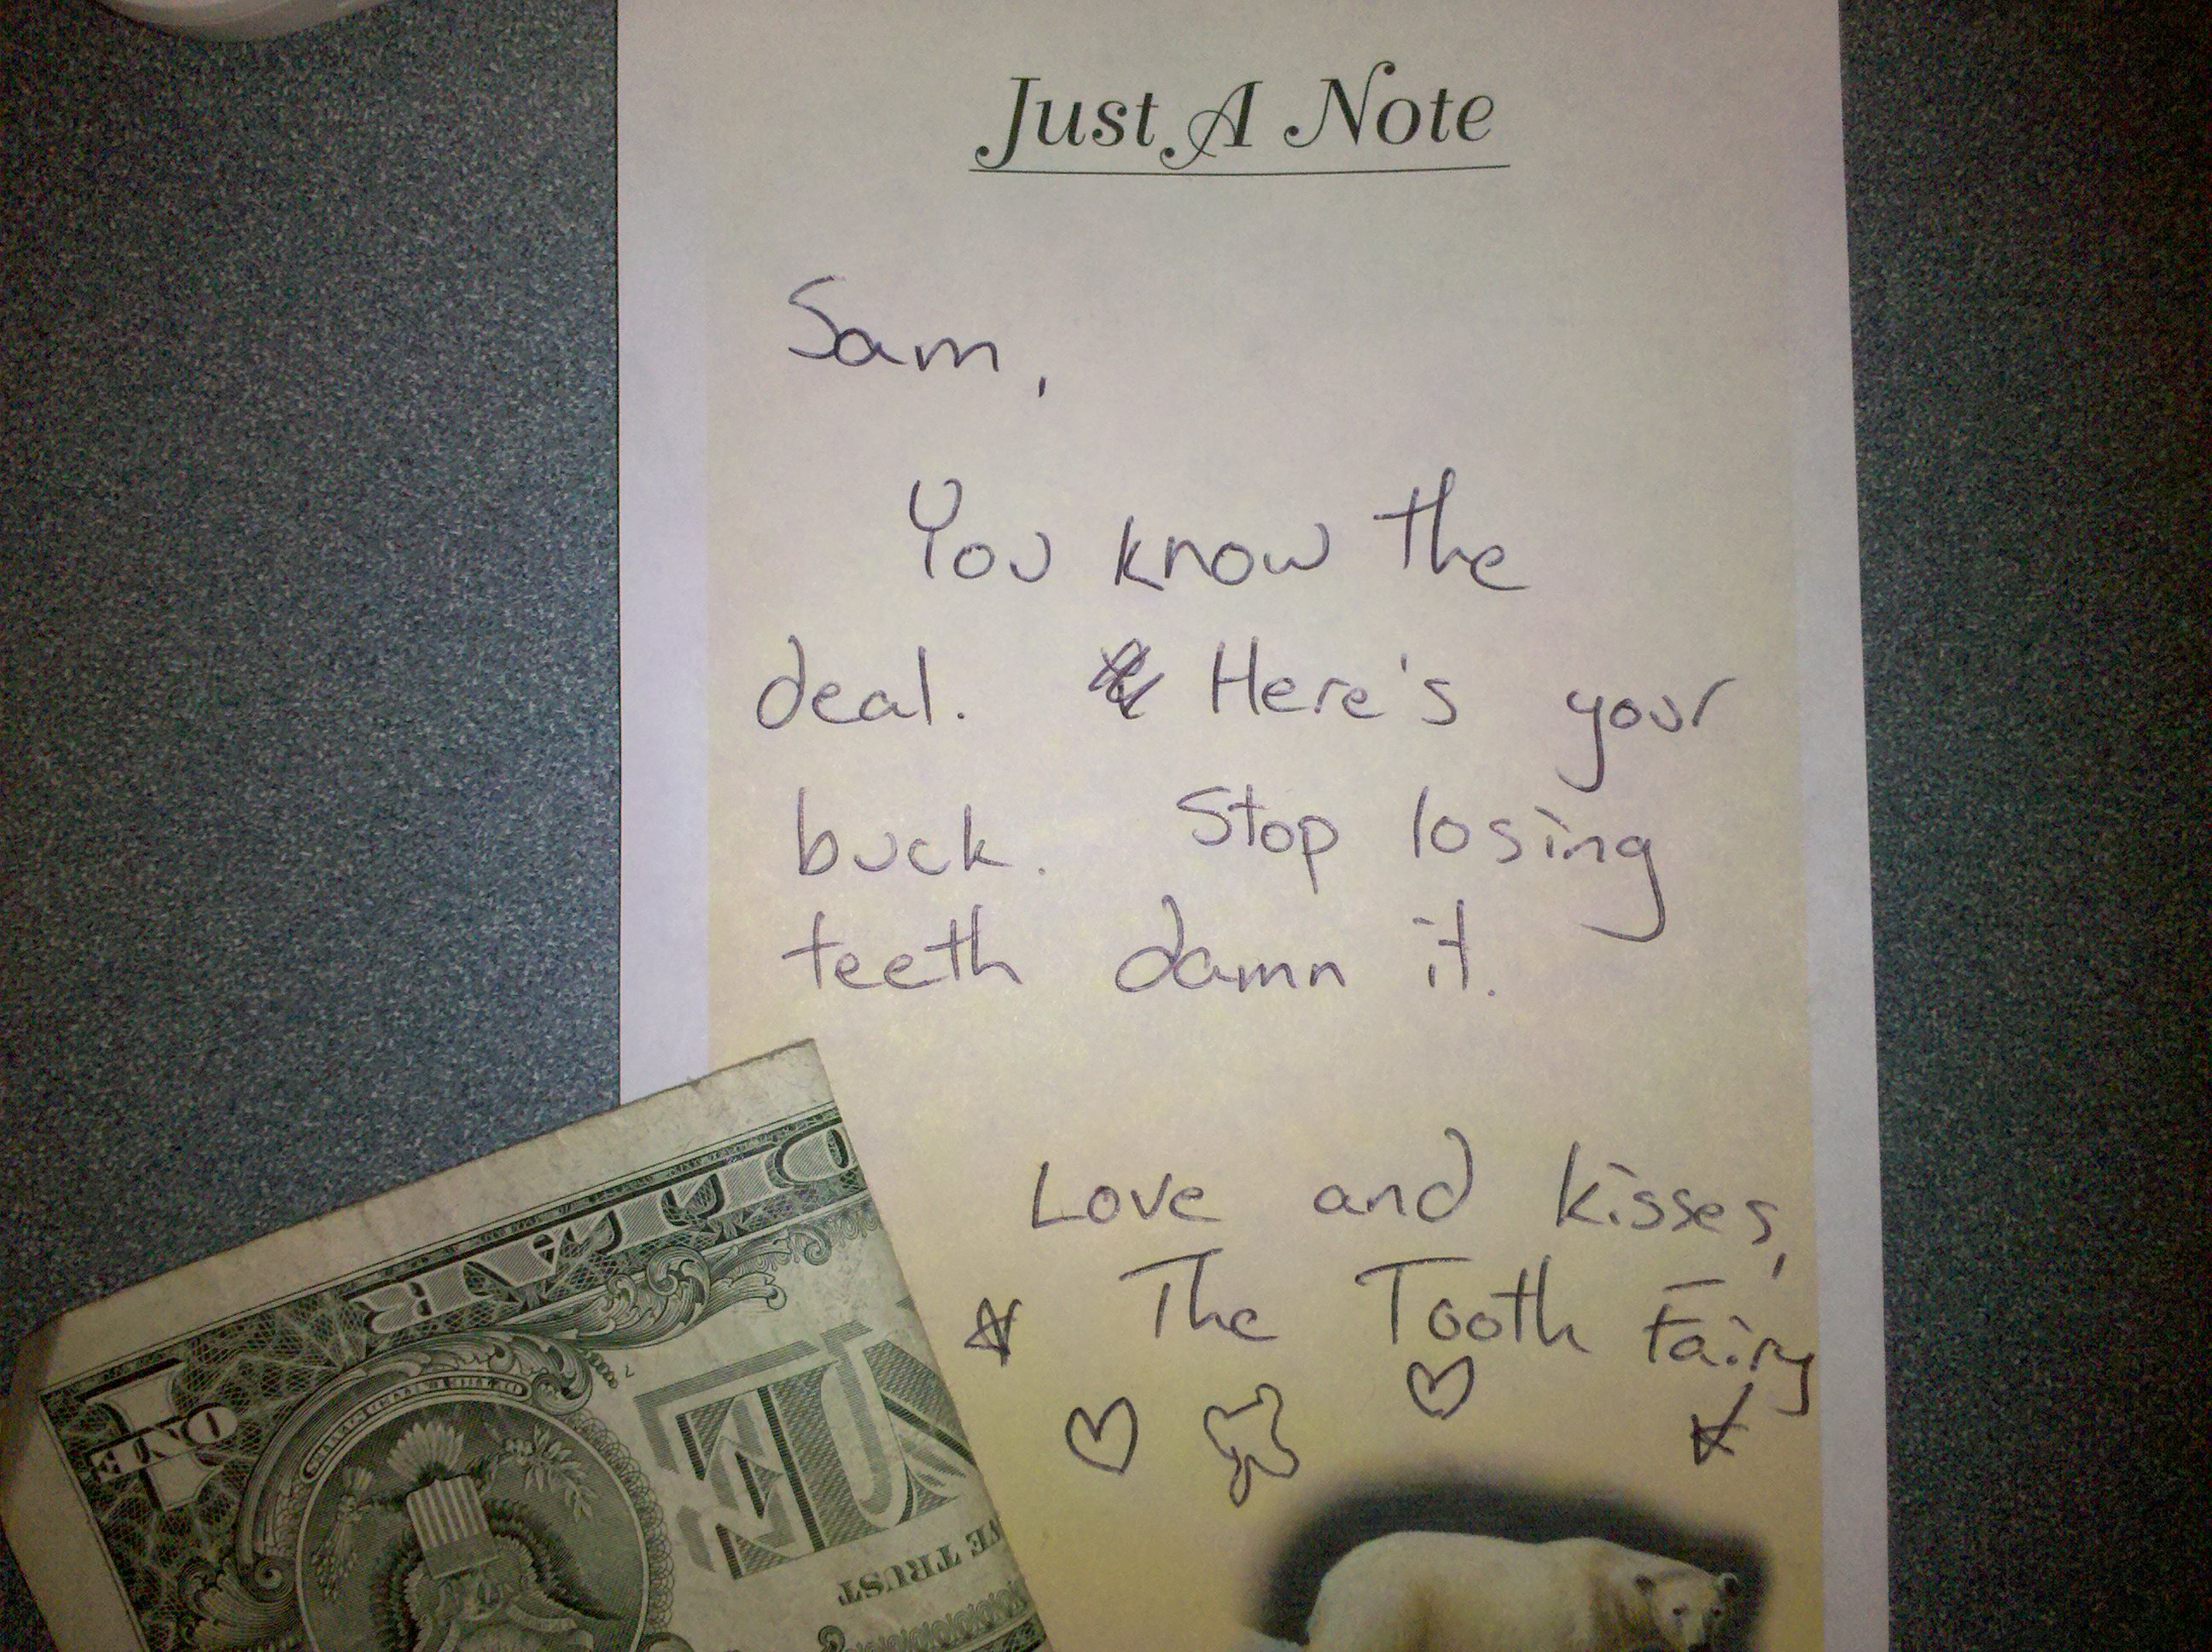 Just A Note
Sam,
You know the
deal. Here's your
buck. Stop losing
teeth damn it.
Love and kisses,
The Tooth Fairy
DOLLAR
ONE
WE TRUST